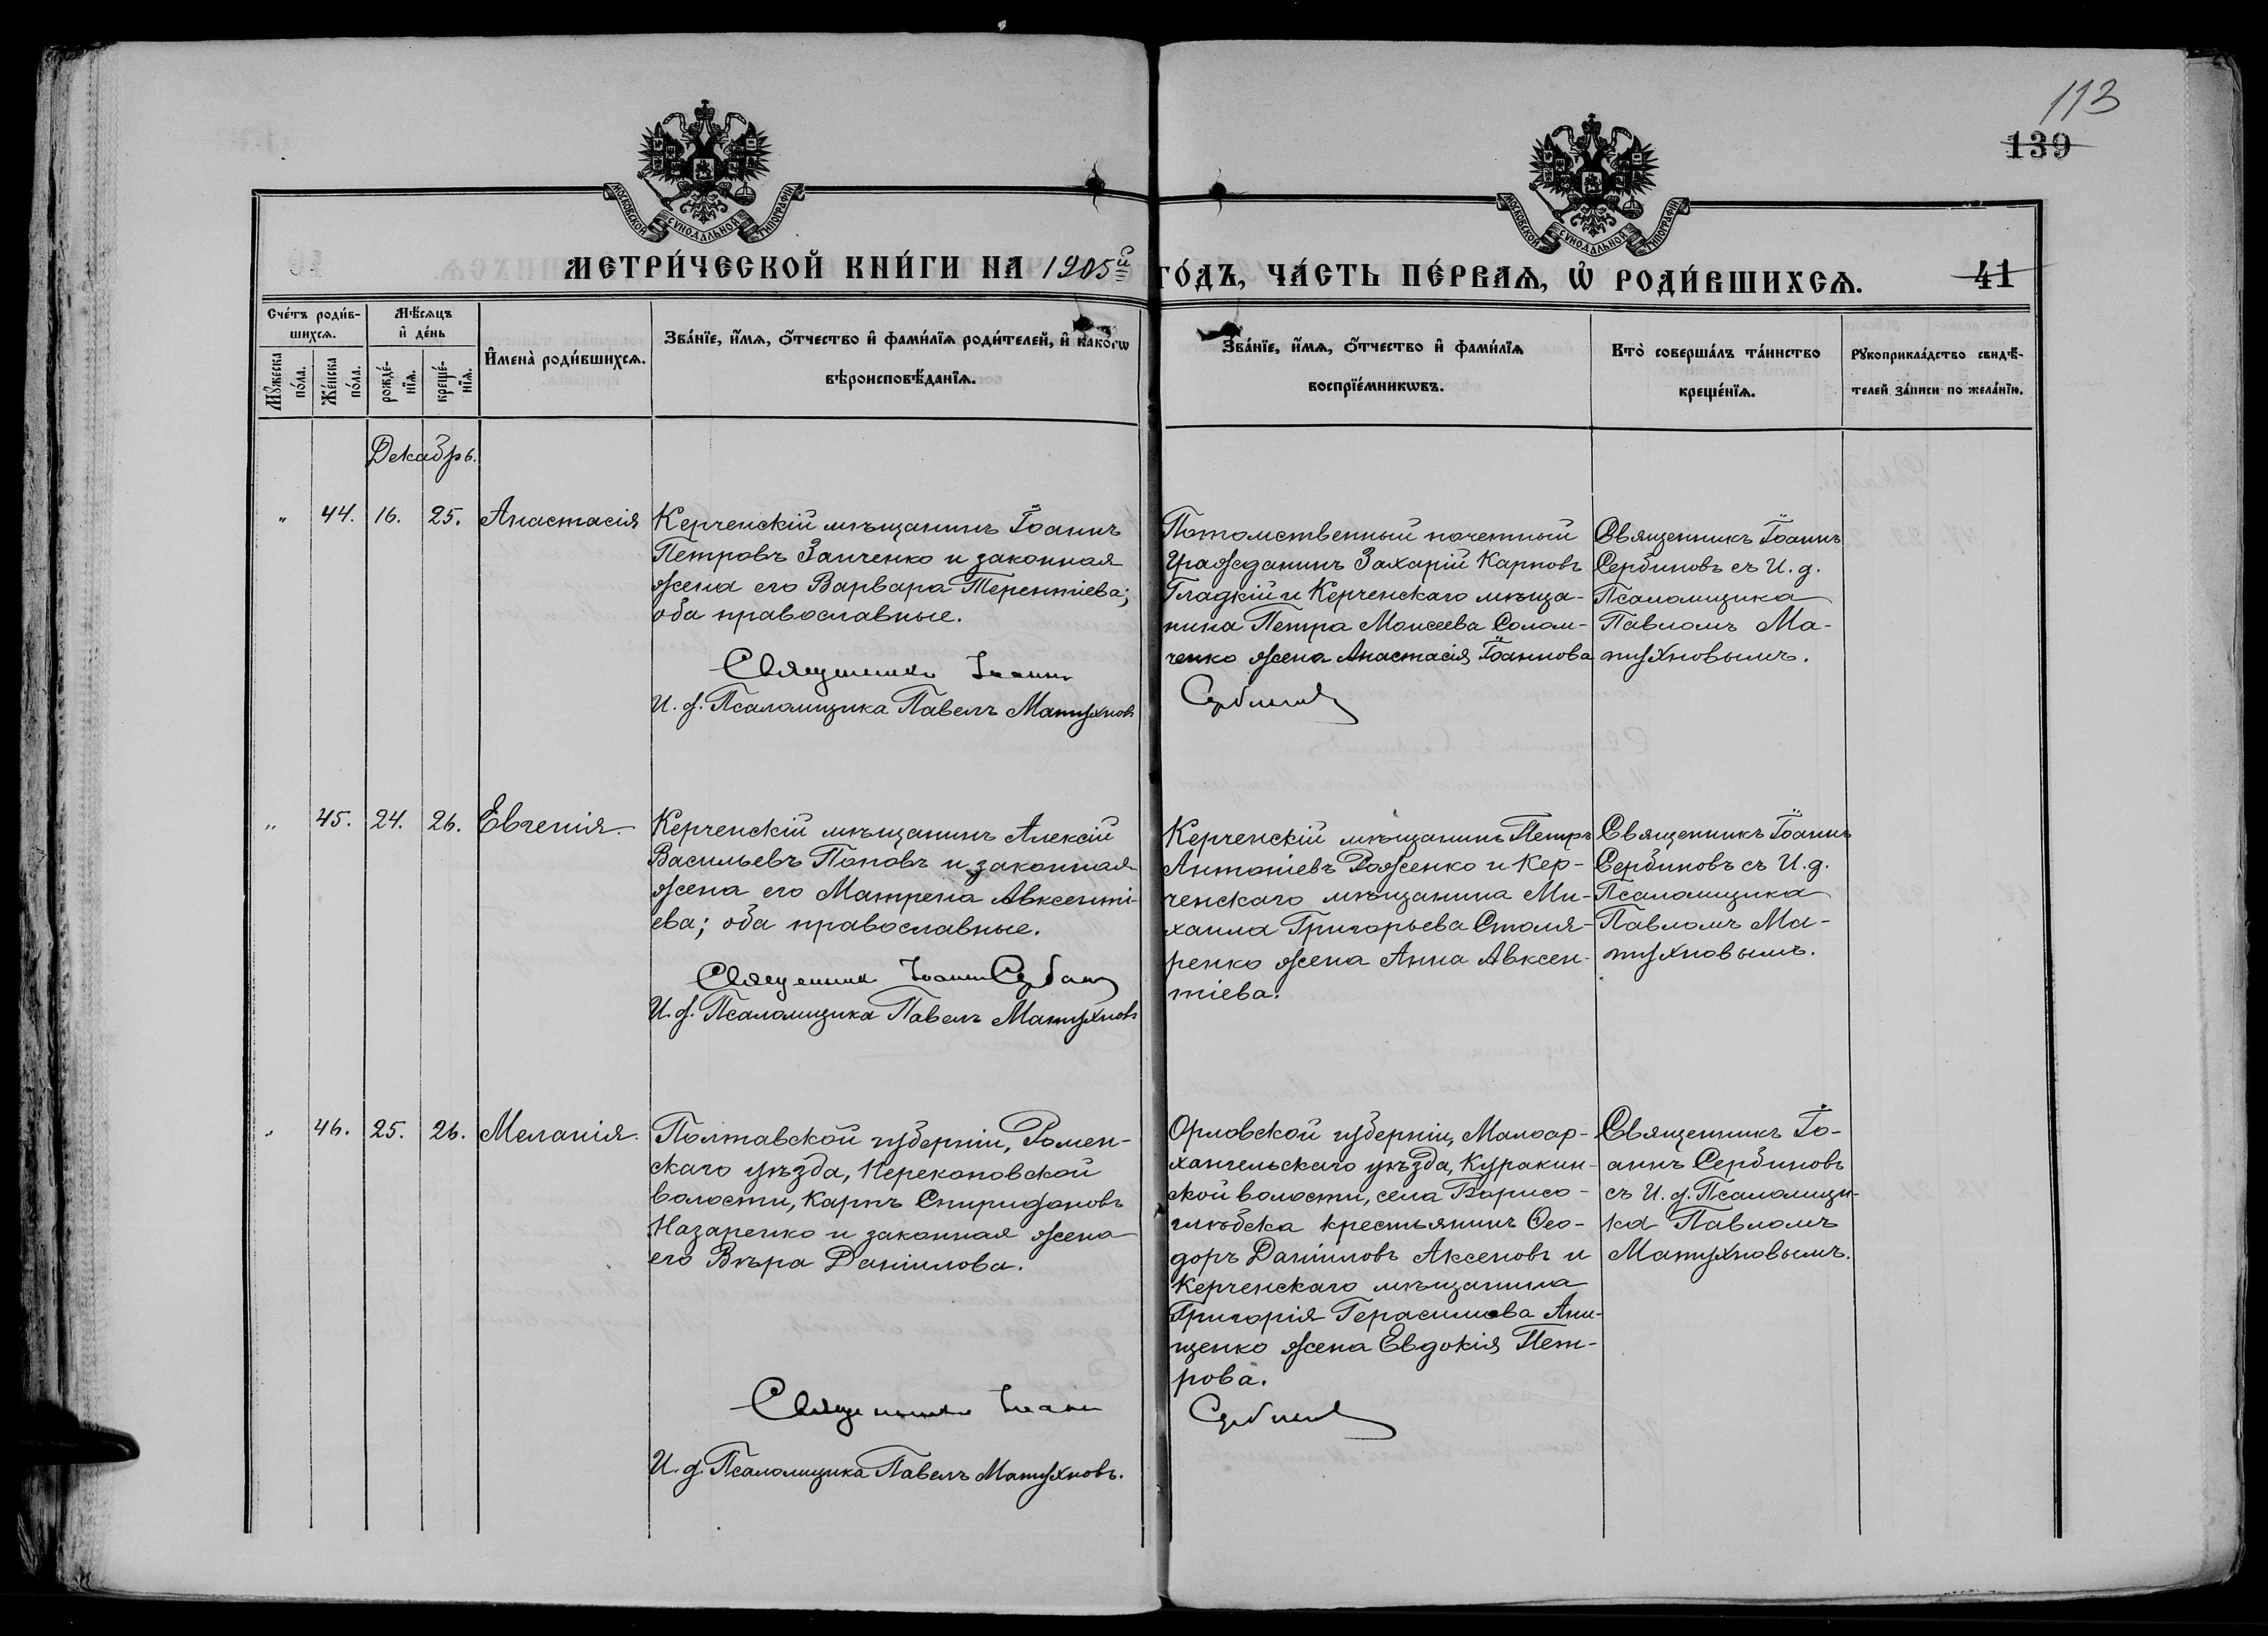 113
139
МОСКОВСКОЙ СѴНОДАЛЬНОЙ ТИПОГРАФІИ
МОСКОВСКОЙ СѴНОДАЛЬНОЙ ТИПОГРАФІИ
МЕТРИ́ЧЕСКОЙ КНИ́ГИ НА 1905й ГО́ДЪ, ЧА́СТЬ ПЕ́РВАѦ, Ѡ҆ РОДИ́ВШИХСѦ. 41
Сче́тъ роди́в-
шихсѧ.
Мꙋ́жеска
по́ла.
Же́нска
по́ла.
Мѣ́сѧцъ
и҆ де́нь
рожде́-
нїѧ.
креще́-
нїѧ.
И҆мена̀ роди́вшихсѧ.
Зва́нїе, и҆́мѧ, ѻ҆́тчество и҆ фами́лїѧ роди́телей, и҆ како́гѡ
вѣроисповѣ́данїѧ.
Зва́нїе, и҆́мѧ, ѻ҆́тчество и҆ фами́лїѧ
воспрїе́мникѡвъ.
Кто̀ соверша́лъ та́инство
креще́нїѧ.
Рꙋкоприкла́дство свидѣ́-
телей за́писи по жела́нїю.
Декабрь.
" 44. 16. 25. Анастасія
Керченскій мѣщанинъ Іоаннъ
Петровъ Заиченко и законная
жена его Варвара Терентіева;
оба православные.
Священникъ Іоаннъ
И. д. Псаломщика Павелъ Матухновъ
Потомственный почетный
Гражданинъ Захарій Карповъ
Гладкій и Керченскаго мѣща-
нина Петра Моисеева Солом-
ченко жена Анастасія Іоаннова
Сербиновъ
Священникъ Іоаннъ
Сербиновъ съ И. д.
Псаломщика
Павломъ Ма-
тухновымъ.
" 45. 24. 26. Евгенія
Керченскій мѣщанинъ Алексій
Васильевъ Поповъ и законная
жена его Матрена Авксенті-
ева; оба православные.
Священникъ Іоаннъ Сербиновъ
И. д. Псаломщика Павелъ Матухновъ
Керченскій мѣщанинъ Петръ
Антоніевъ Роженко и Кер-
ченскаго мѣщанина Ми-
хаила Григорьева Столя-
ренко жена Анна Авксен-
тіева.
Священникъ Іоаннъ
Сербиновъ съ И. д.
Псаломщика
Павломъ Ма-
тухновымъ.
" 46. 25. 26. Меланія.
Полтавской губерніи, Ромен-
скаго уѣзда, Перекоповской
волости, Карпъ Спиридоновъ
Назаренко и законная жена
его Вѣра Даніилова.
Священникъ Іоаннъ
И. д. Псаломщика Павелъ Матухновъ.
Орловской губерніи, Малоар-
хангельскаго уѣзда, Куракин-
ской волости, села Борисо-
глѣбска крестьянинъ Ѳео-
доръ Даніиловъ Аксеновъ и
Керченскаго мѣщанина
Григорія Герасимова Они-
щенко жена Евдокія Пет-
рова.
Сербиновъ
Священникъ Іо-
аннъ Сербиновъ
съ И. д. Псаломщи-
ка Павломъ
Матухновымъ.